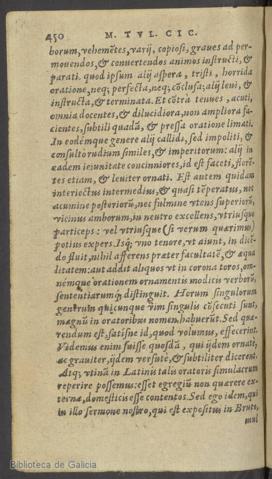 450 M. TVL. CIC.
borum, vehemẽtes, varij, copiosi, graues ad per-
mouendos, & conuertendos animos instructi, &
parati. quod ipsum alij aspera, tristi, horrida
oratione, neq; perfecta, neq; cõclusa: alij leui, &
instructa, & terminata. Et cõtra tenues, acuti,
omnia docentes, & dilucidiora, non ampliora fa-
cientes, subtili quadã, & pressa oratione limati.
In eodemque genere alij callidi, sed impoliti, &
consulto rudium similes, & imperitorum: alij in
eadem ieiunitate concinniores, id est faceti, florẽ-
tes etiam, & leuiter ornati. Est autem quidam
interiectus intermedius, & quasi tẽperatus, nec
acumine posteriorũ, nec fulmine vtens superiorũ,
vicinus amborum, in neutro excellens, vtriusq;
particeps: vel vtriusque (si verum quærimus)
potius expers. Isq; vno tenore, vt aiunt, in dicẽ-
do fluit, nihil afferens præter facultatẽ, & æqua
litatem: aut addit aliquos vt in corona toros, om-
nemque orationem ornamentis modicis verborũ,
sententiarumq; distinguit. Horum singulorum
generum quicunque vim singulis cõsecuti sunt,
magnũ in oratoribus nomen habuerũt. Sed quæ-
rendum est, satisne id, quod volumus, effecerint.
Videmus enim fuisse quosdã, qui ijdem ornatè,
ac grauiter, ijdem versutè, & subtiliter dicerent.
Atq; vtinã in Latinis talis oratoris simulacrum
reperire possemus: esset egregiũ non quærere ex-
terna, domesticis esse contentos. Sed ego idem, qui
in illo sermone nostro, qui est expositus in Bruto,
mul
Biblioteca de Galicia